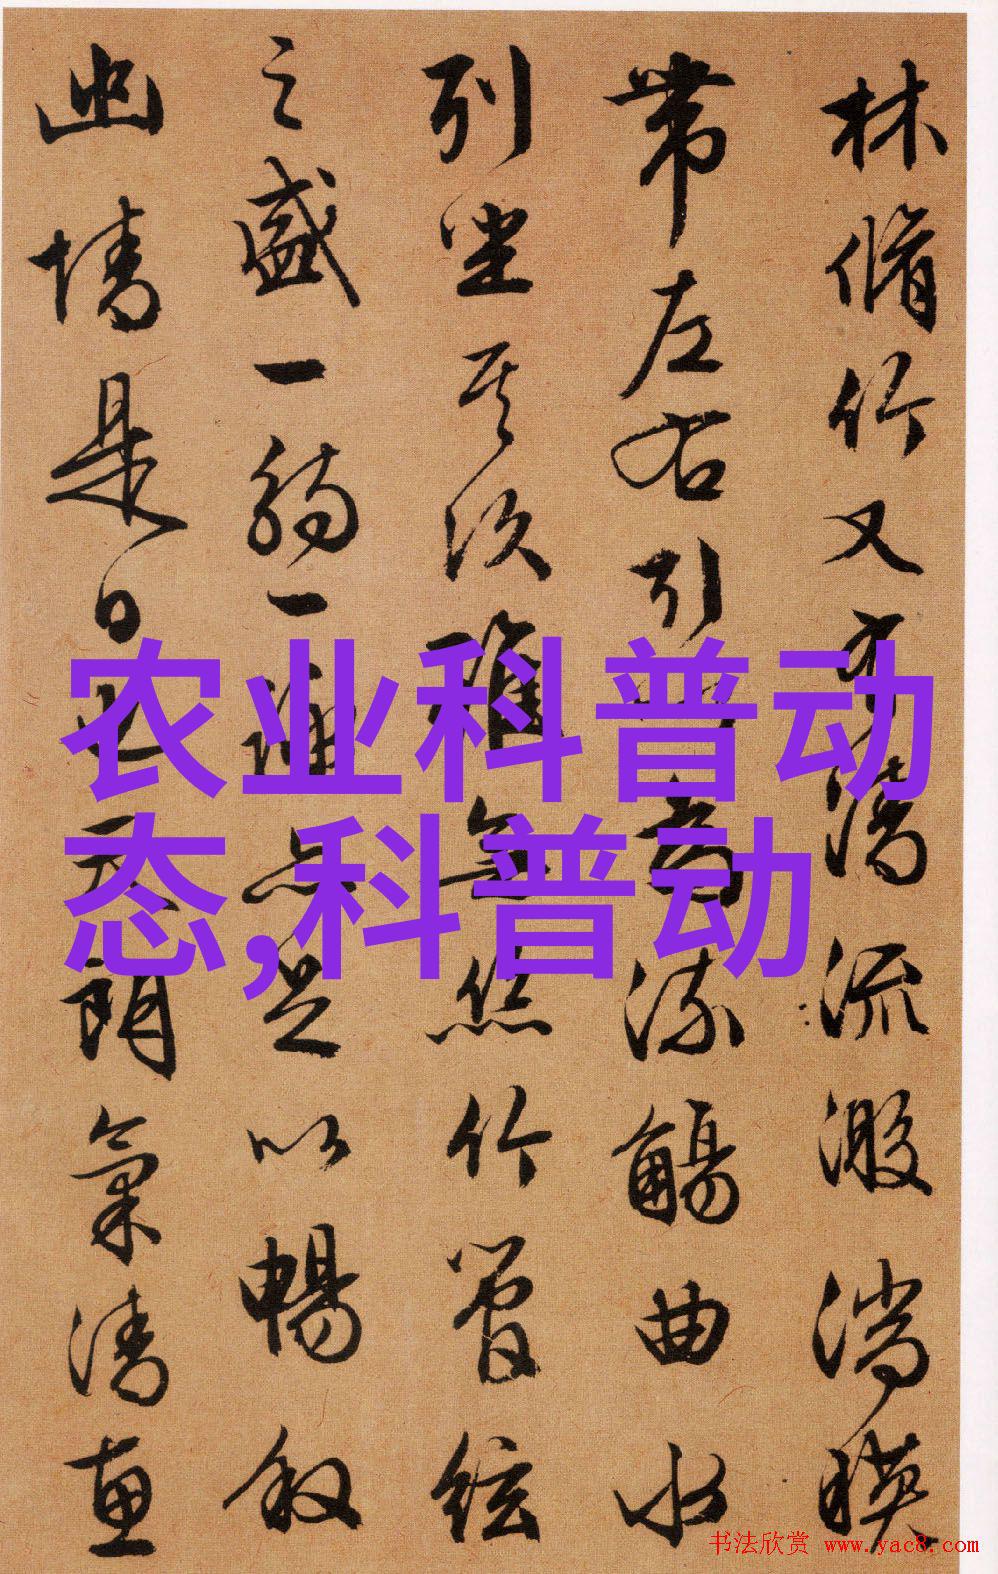 林脩竹又有清流激湍暎
帶左右引以為流觴曲水
列坐其次雖無絲竹管絃
之盛一觴一詠亦足以暢叙
幽情是日也天朗氣清惠
农业科普动
态,科普动
书法欣赏 www.yac8.com